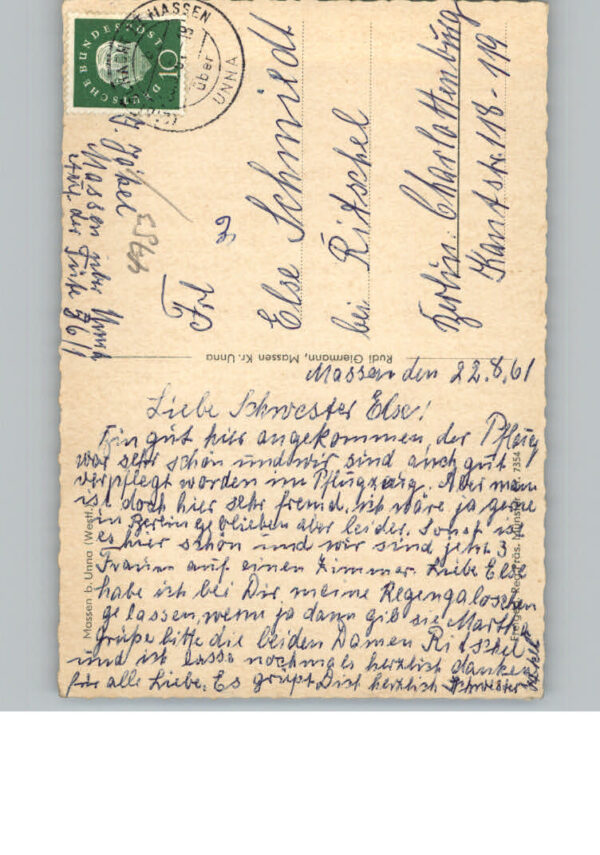 MASSEN
über
UNNA
DEUTSCHE BUNDESPOST
10
Jökel
Massen über Unna
Auf der Tüte 36/1
Frl
Else Schmiedt
bei Ritschel
Berlin. Charlottenburg
Kantstr. 118-119
Rudi Giermann, Massen Kr. Unna
Massen b. Unna (Westf.)
7354
Massen den 22.8.61
Liebe Schwester Else!
Bin gut hier angekommen, der Pflug
war sehr schön und wir sind auch gut
verpflegt worden im Pflugzeug. Aber man
ist doch hier sehr fremd. ich wäre ja gerne
in Berlin geblieben aber leider. Sonst ist
es hier schön und wir sind jetzt 3
Frauen auf einen Zimmer. Liebe Else
habe ich bei Dir meine Regengaloschen
gelassen, wenn ja dann gib sie Martha
grüße bitte die beiden Damen Ritschel
und ich lasse nochmals herzlich danken
für alle Liebe. Es grüßt Dich herzlich Schwester